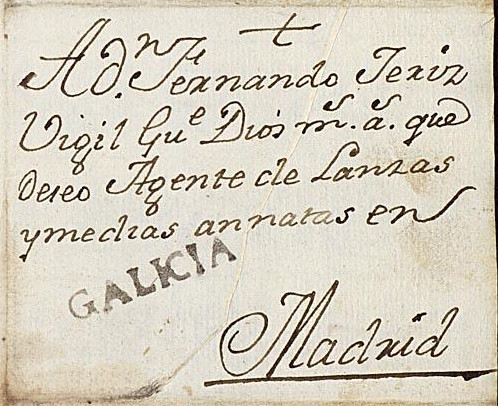 +
A Dn. Fernando Jeriz
Vigil Gue Dios ms. as. que
deseo Agente de Lanzas
y medias annatas en
GALICIA
Madrid